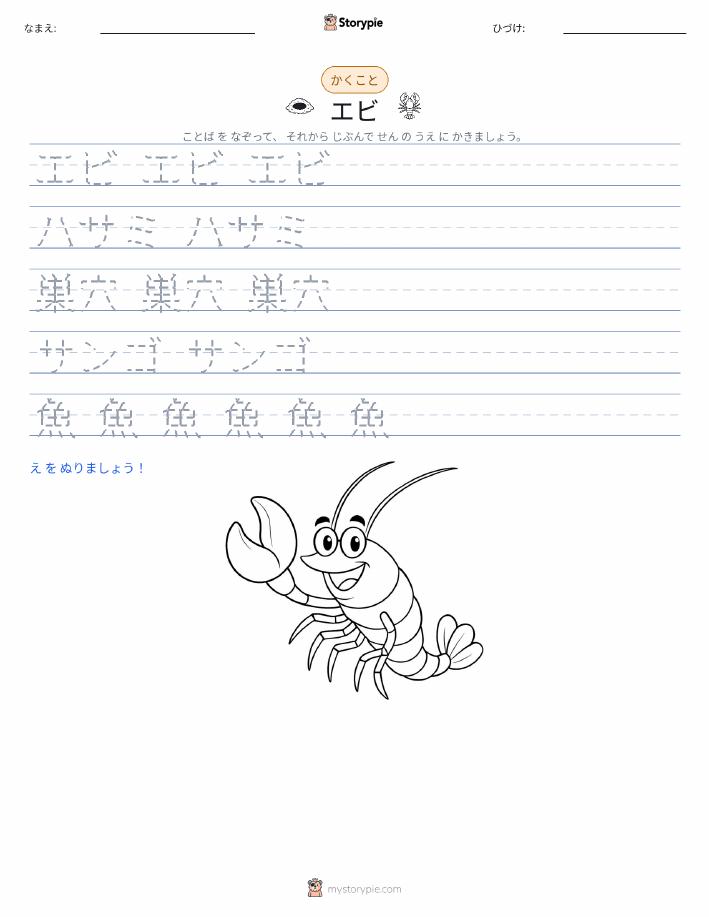 なまえ:
Storypie
ひづけ:
かくこと
エビ
ことば を なぞって、 それから じぶんで せん の うえ に かきましょう。
エビ エビ エビ
ハサミ ハサミ
巣穴 巣穴 巣穴
サンゴ サンゴ
魚 魚 魚 魚 魚 魚
え を ぬりましょう！
mystorypie.com